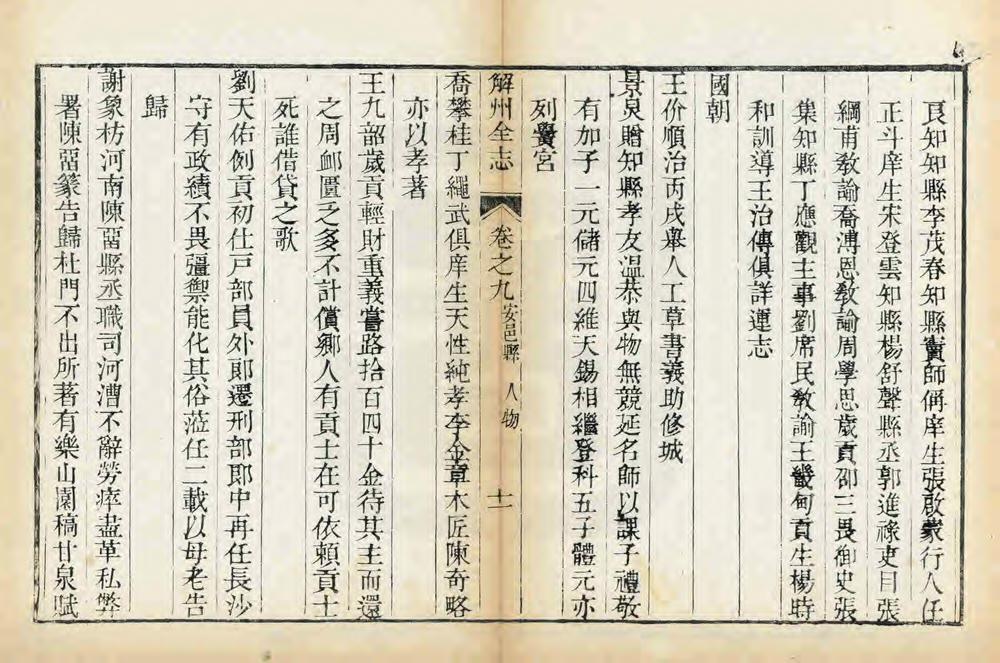 良知知縣李茂春知縣賈師偁庠生張啟蒙行人任
正斗庠生宋登雲知縣楊舒聲縣丞郭進祿吏目張
綱甫敎諭喬溥恩敎諭周學思歲貢邵三畏御史張
集知縣丁應觀主事劉席民敎諭王畿甸貢生楊時
和訓導王治傳俱詳運志
國朝
王价順治丙戌舉人工草書義助修城
景炅贈知縣孝友溫恭與物無競延名師以課子禮敬
有加子一元儲元四維天錫相繼登科五子體元亦
列黌宮
解州全志 卷之九 安邑縣 人物 十一
喬攀桂丁繩武俱庠生天性純孝李金章木匠陳奇略
亦以孝著
王九韶歲貢輕財重義嘗路拾百四十金待其主而還
之周卹匱乏多不計償鄉人有貢士在可依賴貢士
死誰借貸之歌
劉天佑例貢初仕戸部員外郎遷刑部郎中再任長沙
守有政績不畏彊禦能化其俗蒞任二載以母老告
歸
謝象枋河南陳畱縣丞職司河漕不辭勞瘁盡革私弊
署陳畱篆告歸杜門不出所著有樂山園稿甘泉賦